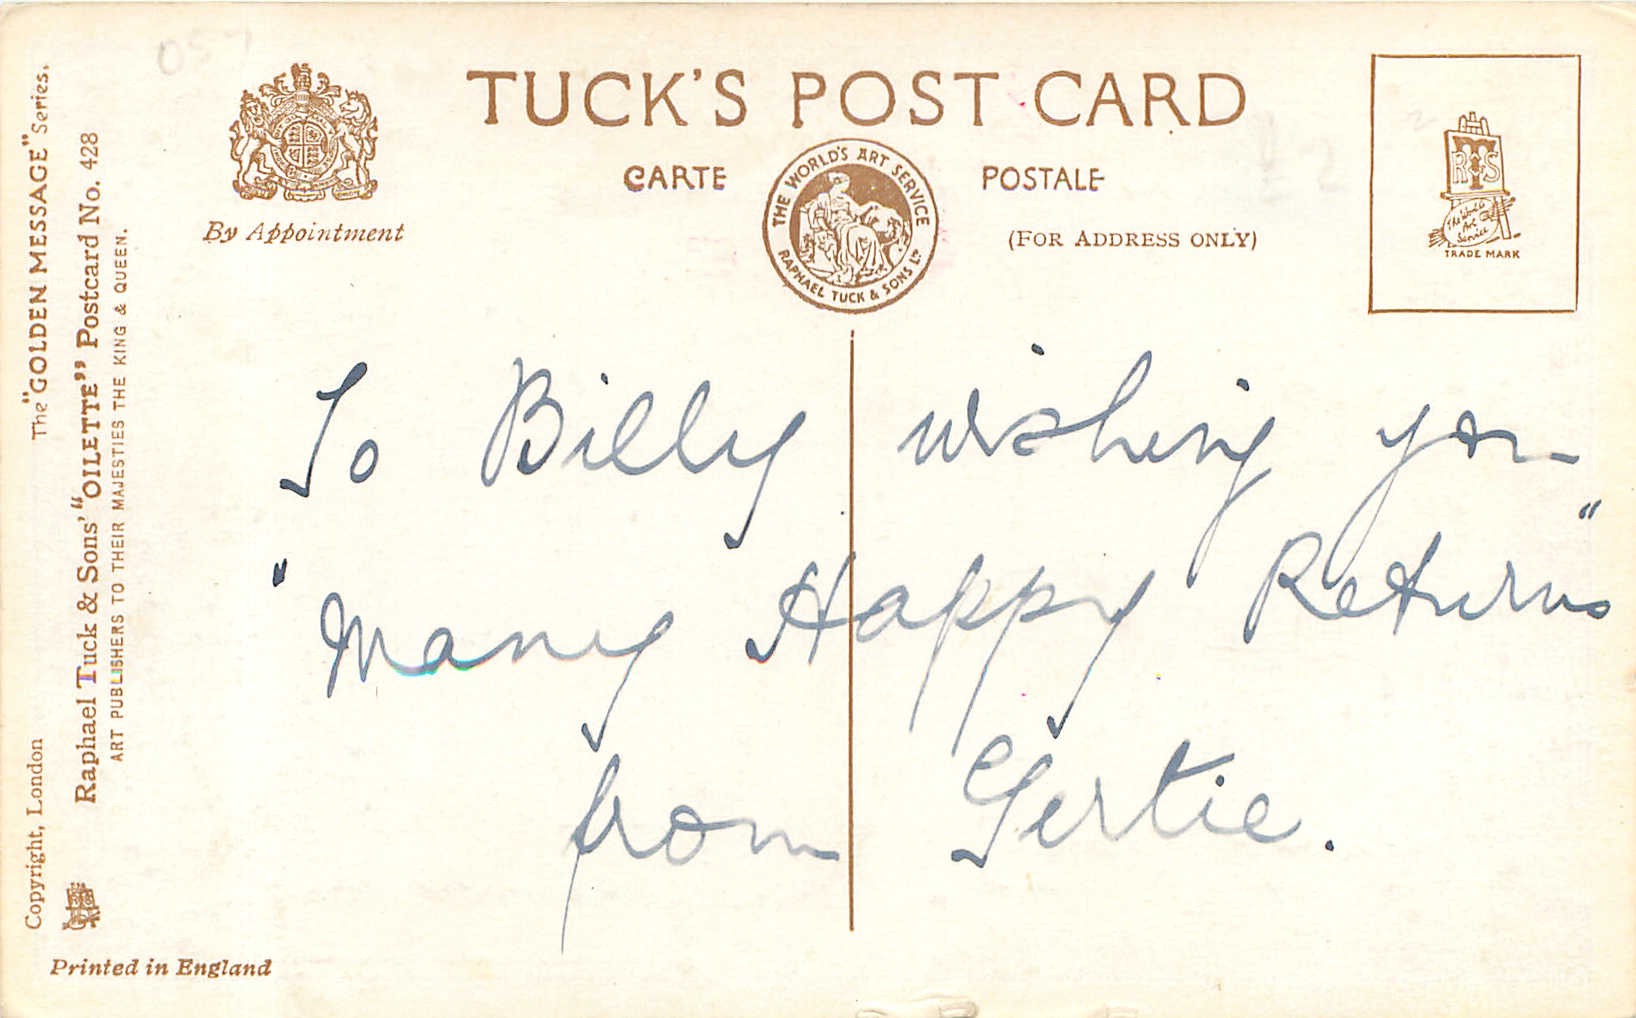 TUCK'S POST CARD
CARTE POSTALE
(FOR ADDRESS ONLY)
By Appointment
THE WORLD'S ART SERVICE
RAPHAEL TUCK & SONS LTD
RTS
The World's
Art
Service
TRADE MARK
The "GOLDEN MESSAGE" Series.
Raphael Tuck & Sons' "OILETTE" Postcard No. 428
ART PUBLISHERS TO THEIR MAJESTIES THE KING & QUEEN.
Copyright, London
Printed in England
To Billy wishing you
"Many Happy Returns"
from Gertie.